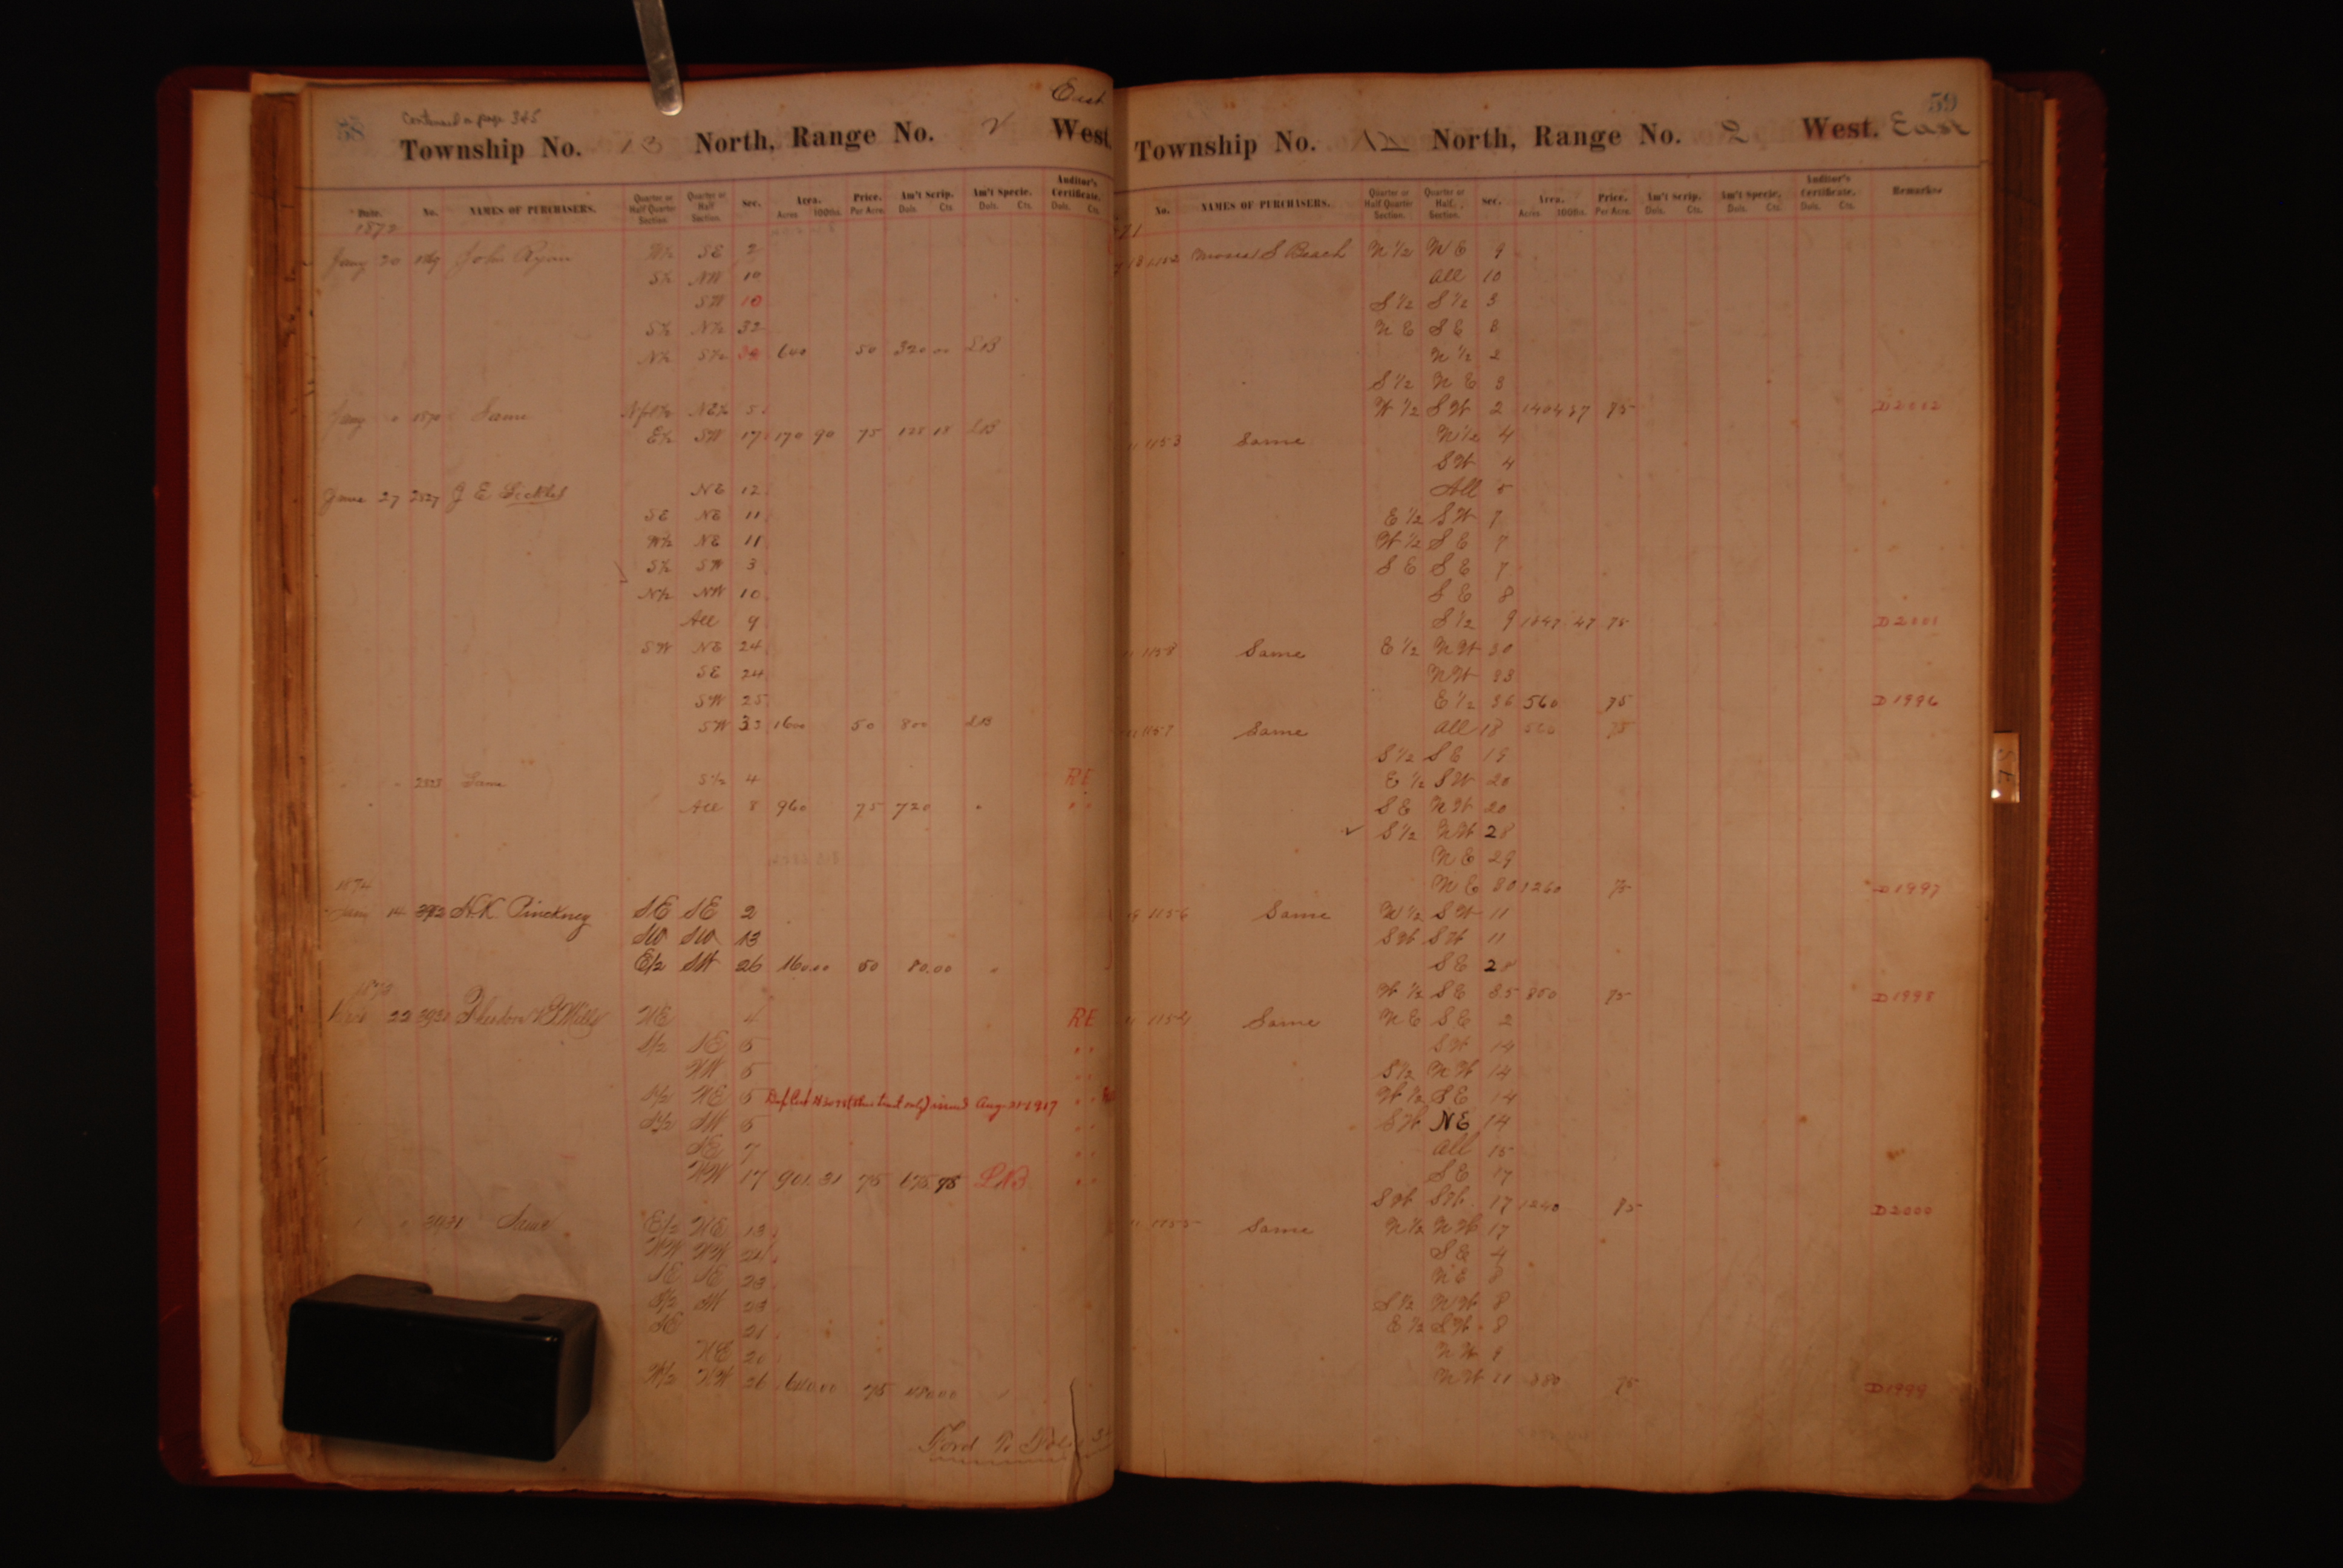 58
Continued on page 345
East
Township No. 13 North, Range No. 2 West.
Date. No. NAMES OF PURCHASERS. Quarter or Half Quarter Section. Quarter or Half Section. Sec. Area. Acres 100ths. Price. Per Acre. Am't Scrip. Dols. Cts. Am't Specie. Dols. Cts. Auditor's Certificate. Dols. Cts.
1872
Jany 20 1869 John Ryan W½ SE 2
S½ NW 10
SW 10
S½ N½ 32
N½ S½ 640 50 320 00
Jany " 1870 Same NE¼ 5
E½ SW 17 170 90 75 128 18
June 27 2527 J E Sickels NE 12
SE NE 11
W½ NE 11
S½ SW 3
N½ NW 10
All 9
SW NE 24
SE 24
SW 25
SW 33 1600 50 800
" " 2528 Same S½ 4 RE
All 8 960 75 720 " " "
1874
Jany 14 H.K. Pinckney SE SE 2
SW SW 13
E½ SW 26 160.00 50 80.00 "
22 Theodore Mills NE 4 RE
S½ SE 5 " "
NW 5 " "
S½ NE 5 issued Aug. 1917 " "
S½ SW 5 " "
SE 7 " "
NW 17 901.31 75 675.98 " "
" " 3931 Same E½ NE 13
NW NW 24
SE SE 23
S½ SW 23
SE 21
NE 20
W½ NW 26 640.00 75 480.00
59
Township No. 12 North, Range No. 2 West. East
No. NAMES OF PURCHASERS. Quarter or Half Quarter Section. Quarter or Half Section. Sec. Area. Acres 100ths. Price. Per Acre. Am't Scrip. Dols. Cts. Am't Specie. Dols. Cts. Auditor's Certificate. Dols. Cts. Remarks
71
1152 Moses S Beach N½ NE 9
All 10
S½ S½ 3
NE SE 8
N½ 2
S½ NE 3
W½ SW 2 1404 37 75 D2002
" 1153 Same N½ 4
SW 4
All 5
E½ SW 7
W½ SE 7
SE SE 7
SE 8
S½ 9 47 75 D2001
" 1158 Same E½ NW 30
NW 33
E½ 36 560 75 D1996
" 1157 Same All 18 560 75
S½ SE 19
E½ SW 20
SE NW 20
✓ S½ NW 28
NE 29
NE 30 1260 75 D1997
" 1156 Same N½ SW 11
SW SW 11
SE 28
W½ SE 35 75 D1998
" 1154 Same NE SE 2
SW 14
S½ NW 14
W½ SE 14
SW NE 14
All 15
SE 17
SW SW 17 1240 75 D2000
" 1155 Same N½ NW 17
SE 4
NE 8
S½ NW 8
E½ SW 8
NW 9
NW 11 880 75 D1999